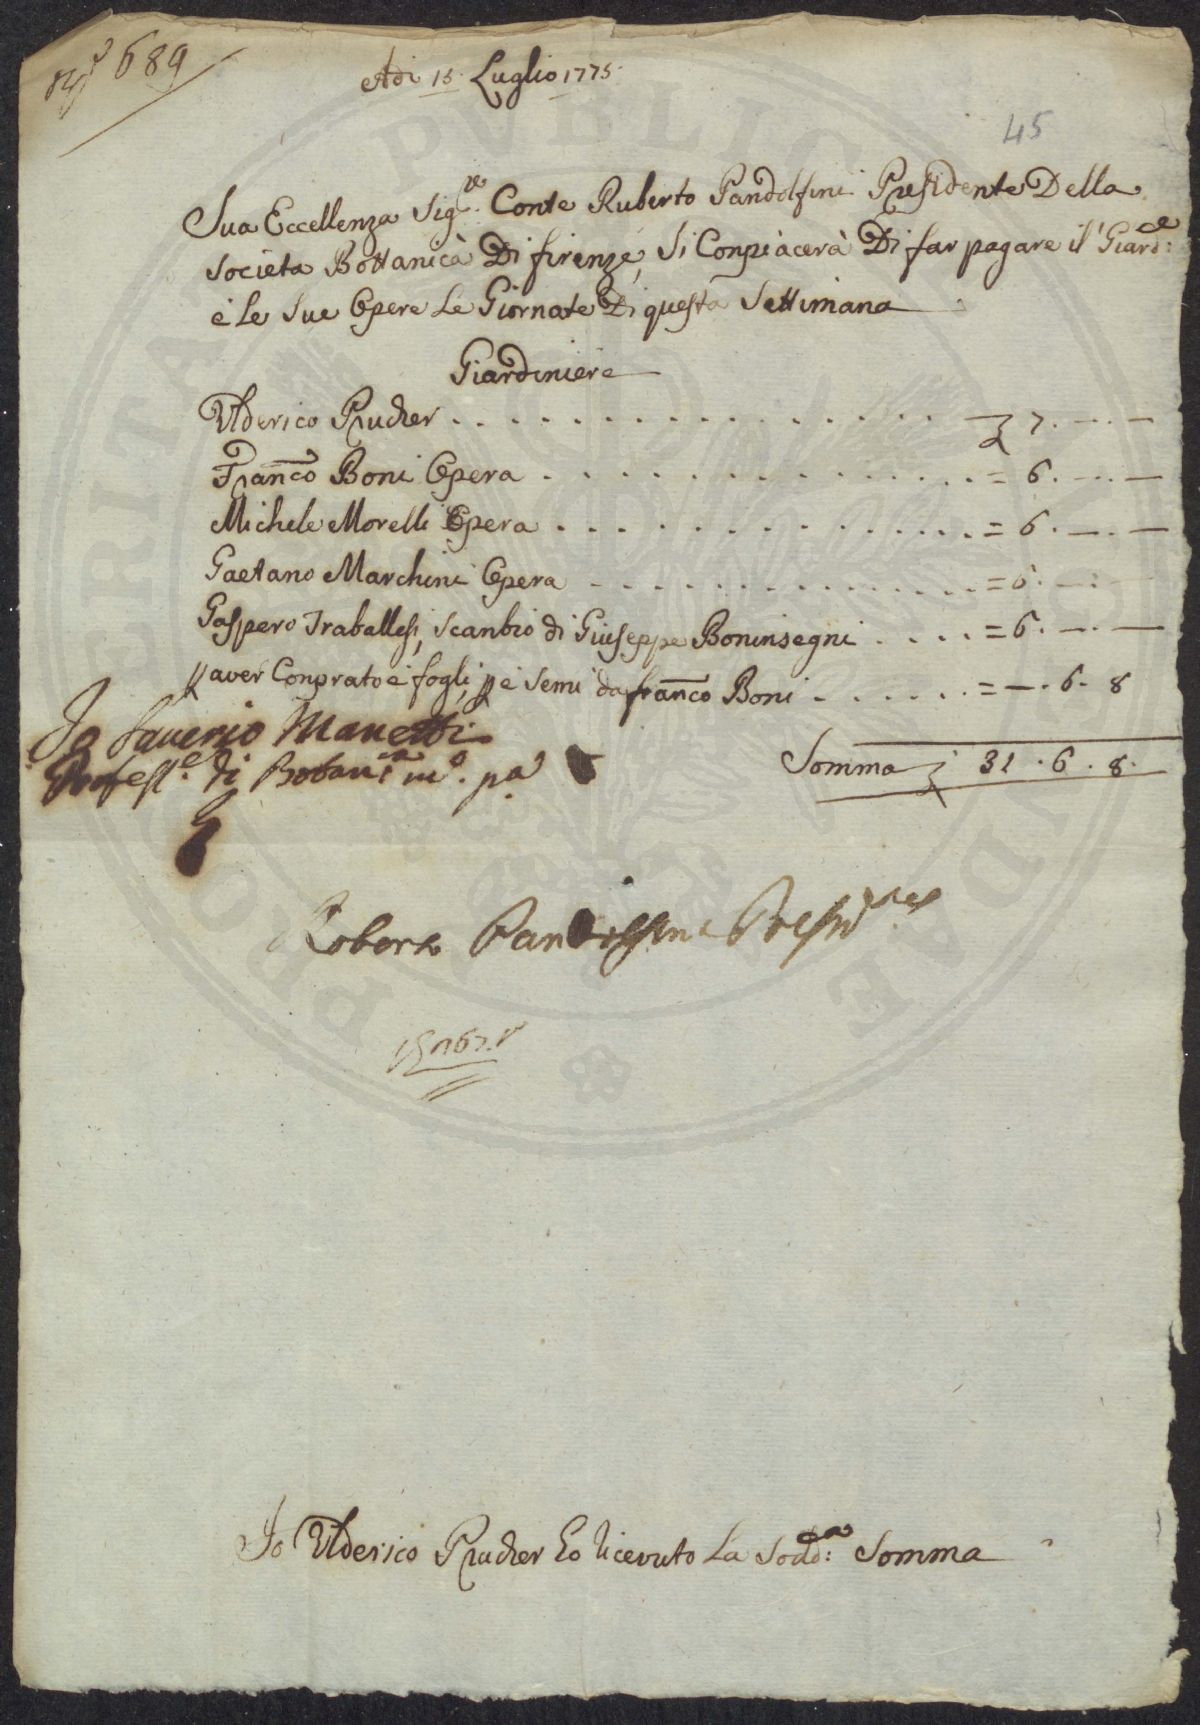 689
Adi 15 Luglio 1775
45
Sua Eccellenza Sig.re Conte Ruberto Pandolfini Presidente Della
Societa Bottanicà Di firenze, Si Conpiacerà Di far pagare il Giard:re
e le Sue Opere Le Giornate Di questa Settimana
Giardiniere
Ulderico Prucker . . . . 7. —. —
Franco Boni Opera . . . . = 6. —. —
Michele Morelli Opera . . . . = 6. —. —
Gaetano Marchini Opera . . . . = 6. —. —
Gaspero Traballesi, Scanbio di Giuseppe Boninsegni . . . . = 6. —. —
p aver Conprato e fogli, p e Semi da franco Boni . . . . = —. 6. 8
Io Saverio Manetti
Profess.e di Botan.a m.o p.a
Somma 31. 6. 8.
Roberto Pandolfini Presid.te
Io Ulderico Prucker Ho Ricevuto La Sodd:a Somma
PRO PVBLICA